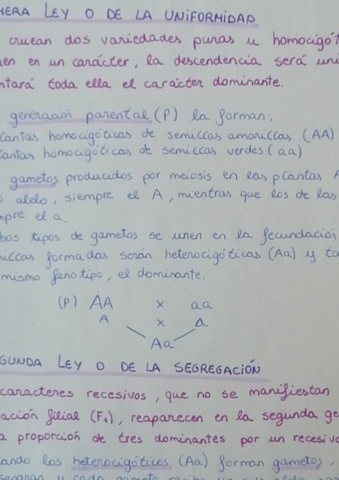 MERA LEY O DE LA UNIFORMIDAD
cruzan dos variedades puras u homocigót
en en un carácter, la descendencia será uni
ntará toda ella el carácter dominante.
generación parental (P) la forman:
lantas homocigóticas de semillas amarillas (AA)
lantas homocigóticas de semillas verdes (aa)
gametos producidos por meiosis en las plantas A
o alelo, siempre el A, mientras que los de las
mpre el a.
bos tipos de gametos se unen en la fecundación
illas formadas serán heterocigóticas (Aa) y to
mismo fenotipo, el dominante.
(P) AA x aa
A x a
Aa
GUNDA LEY O DE LA SEGREGACIÓN
caracteres recesivos, que no se manifiestan
ación filial (F1), reaparecen en la segunda ge
a proporción de tres dominantes por un recesivo
ando los heterocigóticos (Aa) forman gametos,